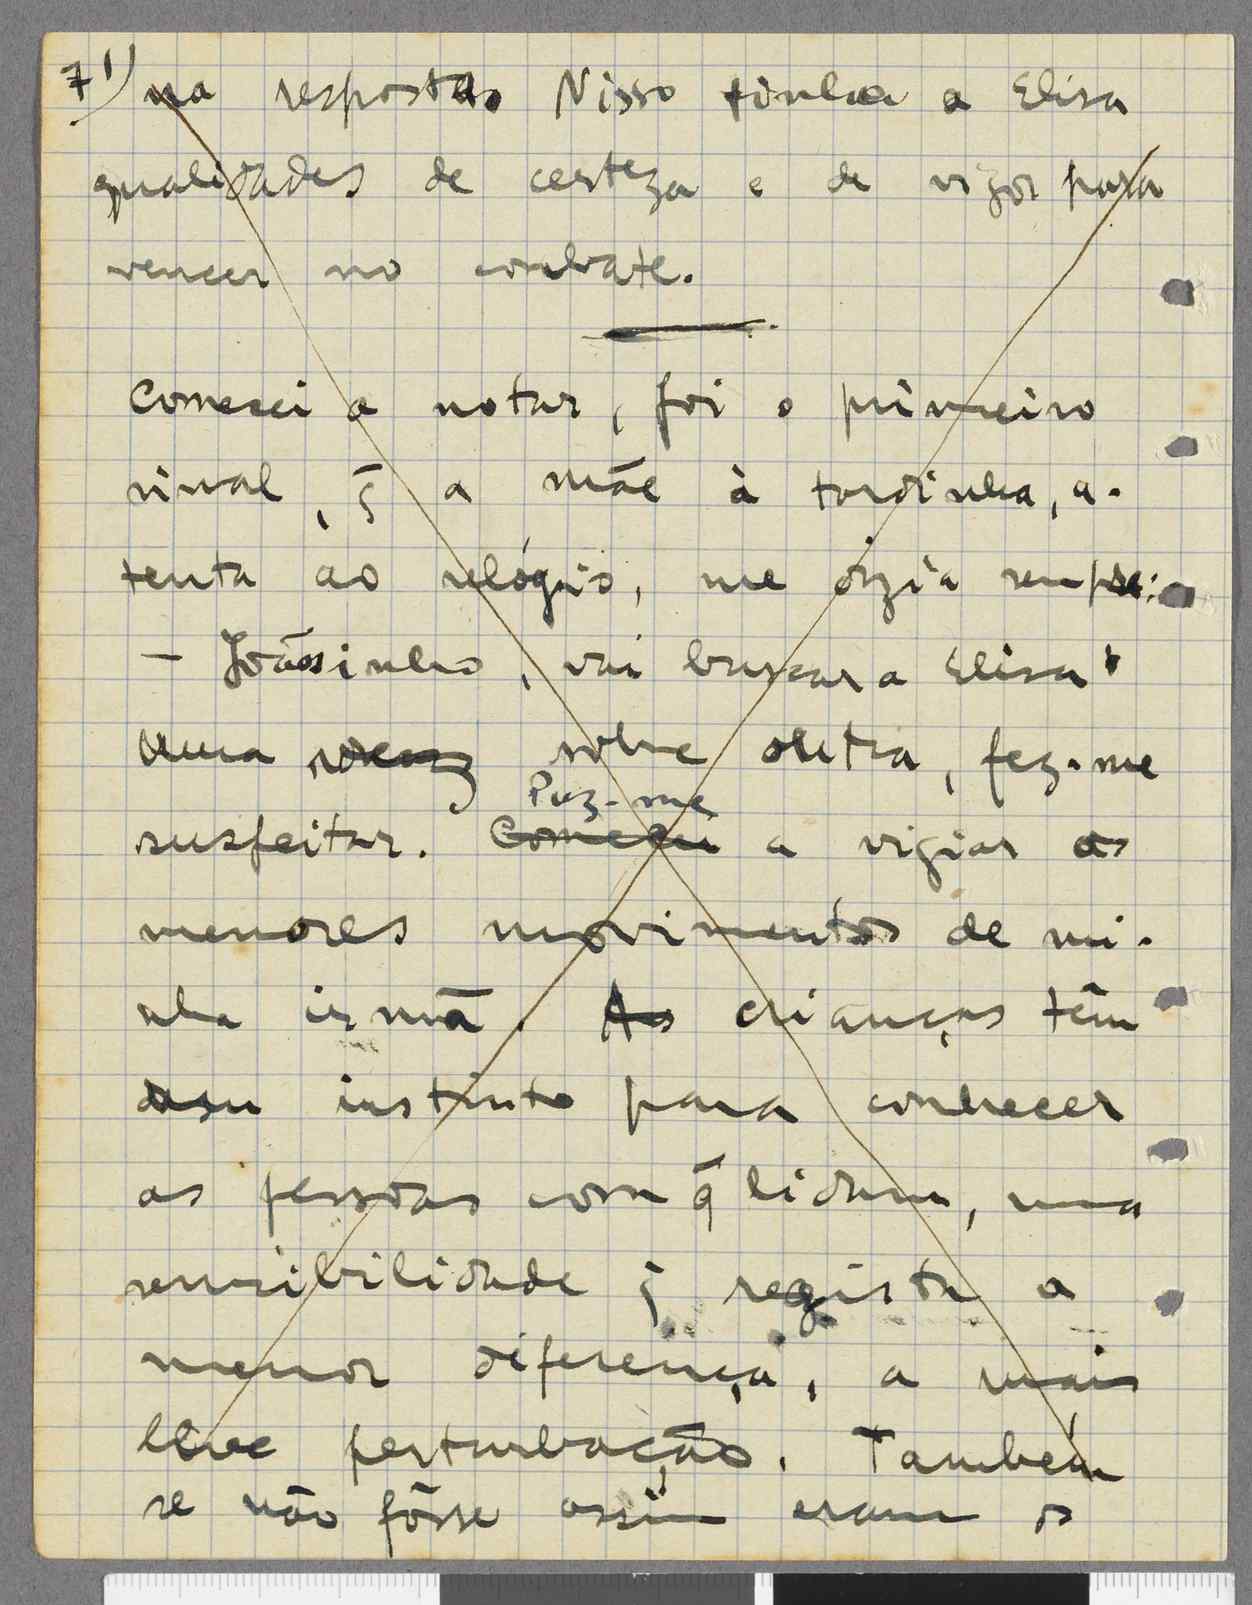 71) na resposta. Nisso tinha a Elisa
qualidades de certeza e de vigor para
vencer no combate.
Comecei a notar, foi o primeiro
sinal, q̃ a mãe à tardinha, a-
tenta ao relógio, me dizia sempre:
— Joãosinho, vai buscar a Elisa!
Uma sobre outra, fez-me
Puz-me
suspeitar. Comecei a vigiar os
menores movimentos de mi-
nha irmã. As crianças têm
um instinto para conhecer
as pessoas com q̃ lidam, uma
sensibilidade q̃ regista a
menor diferença, a mais
leve perturbação. Também
se não fôsse assim eram os